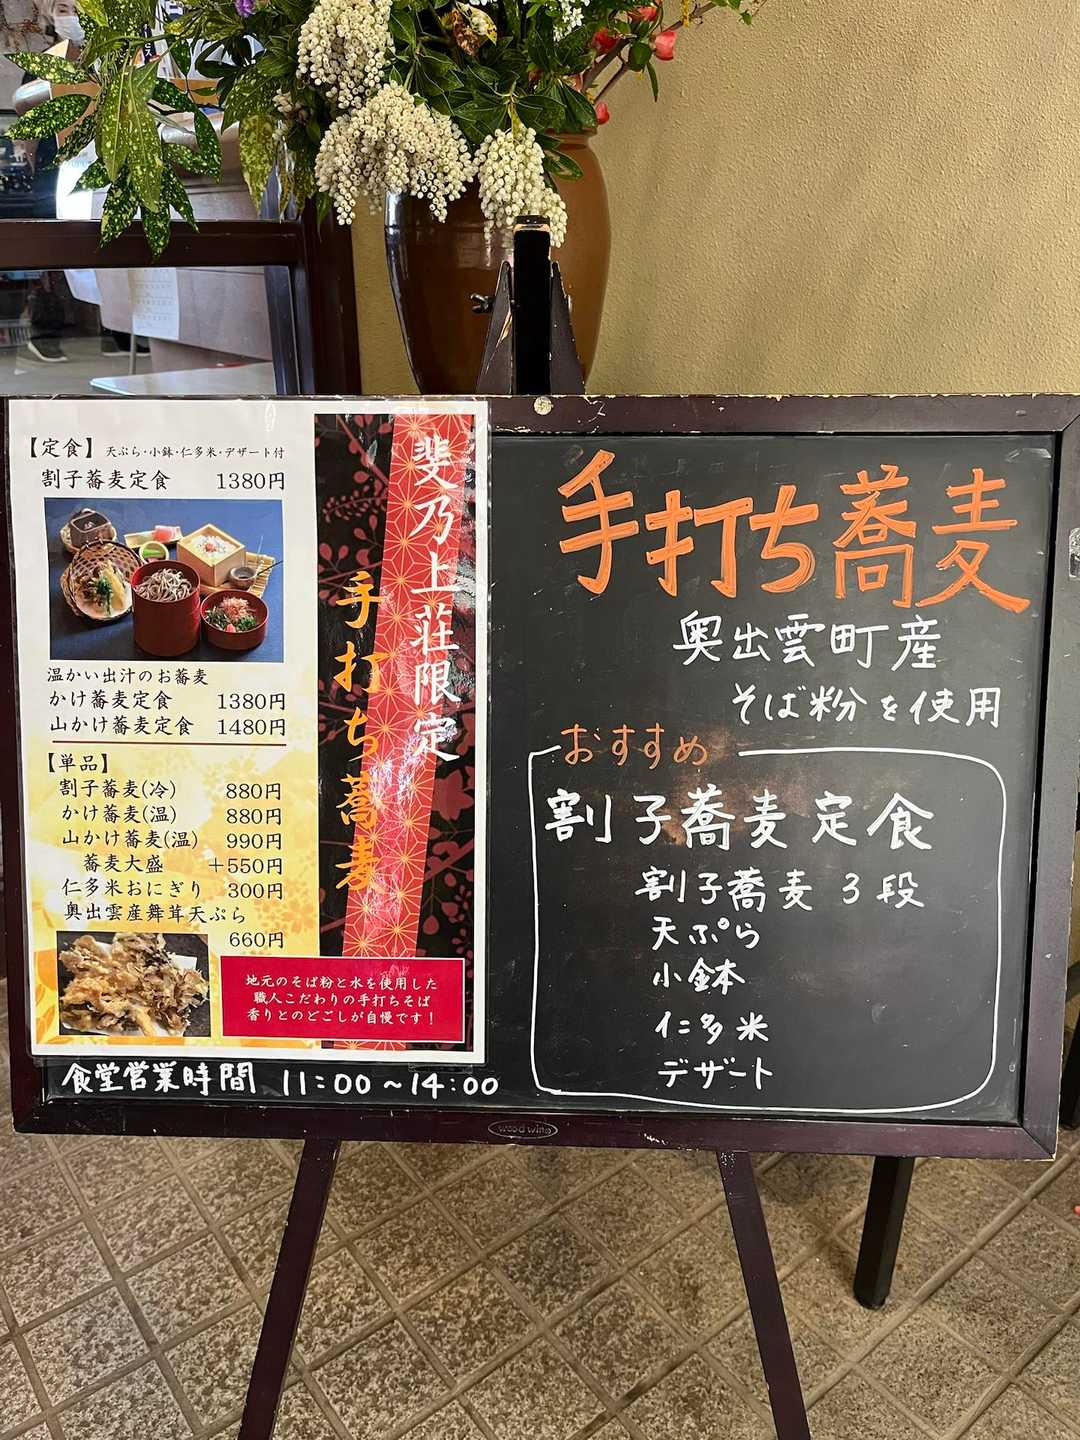 【定食】天ぷら・小鉢・仁多米・デザート付
割子蕎麦定食 1380円
温かい出汁のお蕎麦
かけ蕎麦定食 1380円
山かけ蕎麦定食 1480円
【単品】
割子蕎麦(冷) 880円
かけ蕎麦(温) 880円
山かけ蕎麦(温) 990円
蕎麦大盛 +550円
仁多米おにぎり 300円
奥出雲産舞茸天ぷら
660円
斐乃上荘限定
手打ち蕎麦
地元のそば粉と水を使用した
職人こだわりの手打ちそば
香りとのどごしが自慢です!
食堂営業時間 11:00~14:00
手打ち蕎麦
奥出雲町産
そば粉を使用
おすすめ
割子蕎麦定食
割子蕎麦3段
天ぷら
小鉢
仁多米
デザート
wood wing